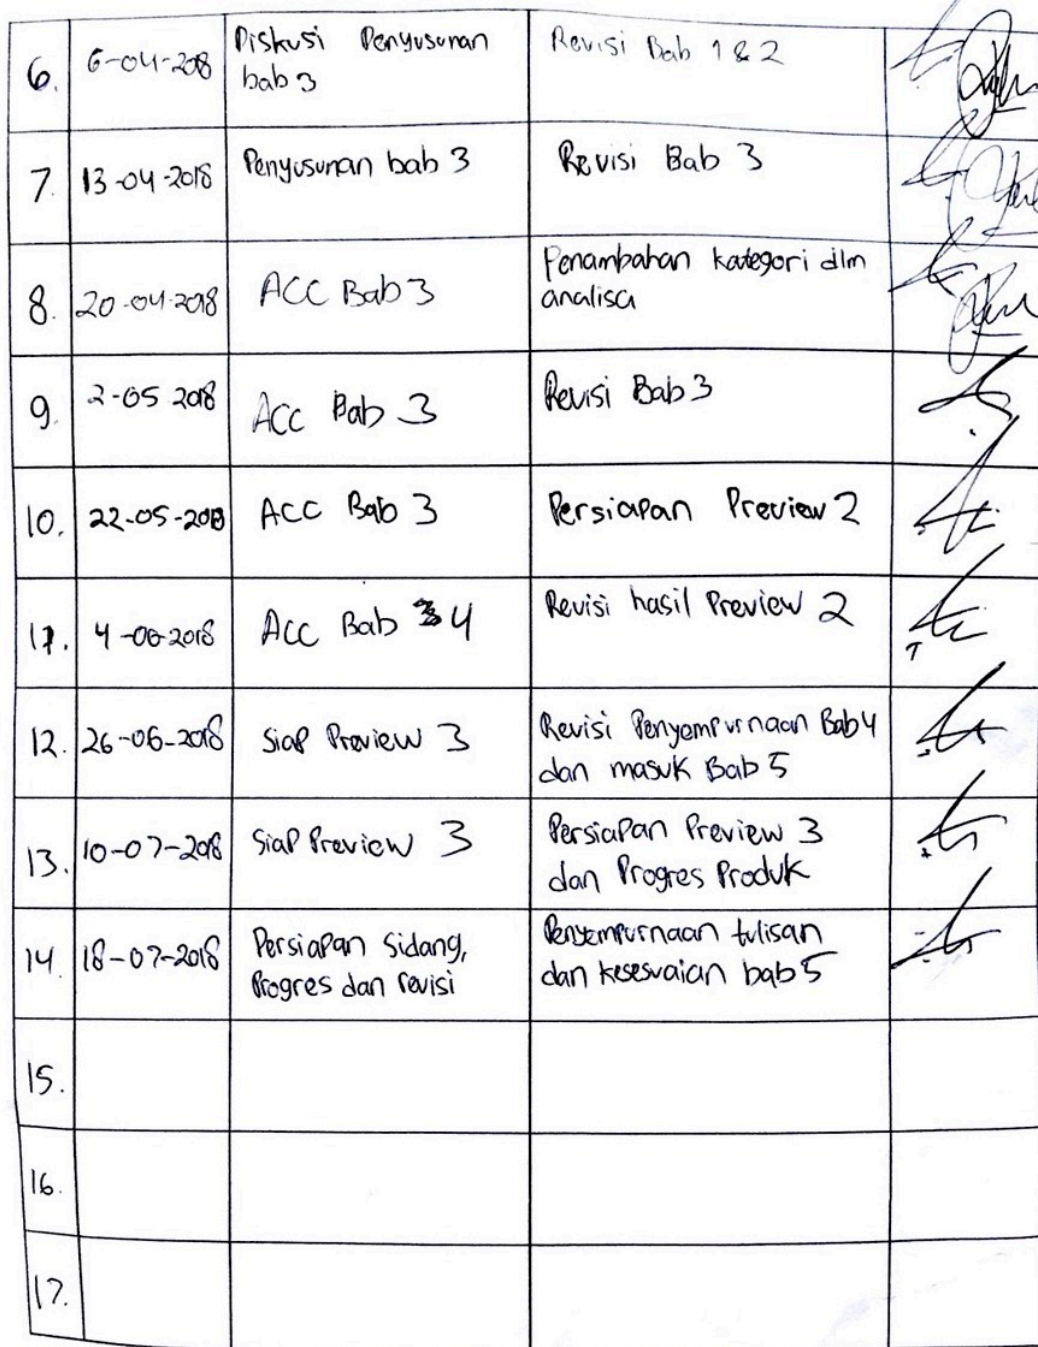 6. 6-04-2018 Diskusi Penyusunan Revisi Bab 1 & 2
bab 3
7. 13-04-2018 Penyusunan bab 3 Revisi Bab 3
8. 20-04-2018 ACC Bab 3 Penambahan kategori dlm
analisa
9. 2-05 2018 ACC Bab 3 Revisi Bab 3
10. 22-05-2018 ACC Bab 3 Persiapan Preview 2
11. 4-06-2018 ACC Bab 4 Revisi hasil Preview 2
12. 26-06-2018 Siap Preview 3 Revisi Penyempurnaan Bab 4
dan masuk Bab 5
13. 10-07-2018 Siap Preview 3 Persiapan Preview 3
dan Progres Produk
14. 18-07-2018 Persiapan Sidang, Penyempurnaan tulisan
Progres dan revisi dan kesesuaian bab 5
15.
16.
17.